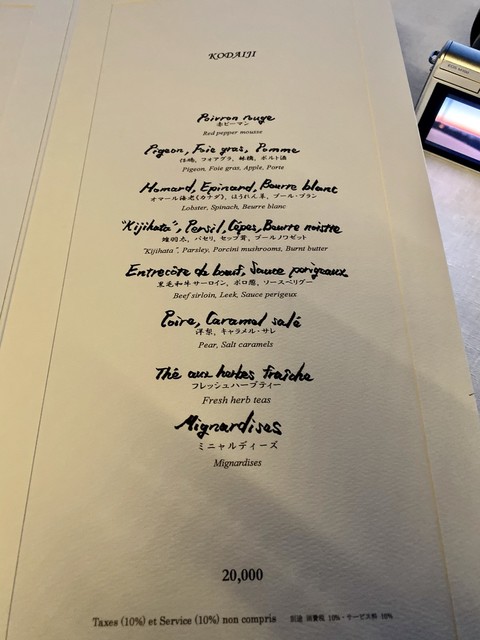 KODAIJI
Poivron rouge
赤ピーマン
Red pepper mousse
Pigeon, Foie gras, Pomme
仔鳩、フォアグラ、林檎、ポルト酒
Pigeon, Foie gras, Apple, Porto
Homard, Epinard, Beurre blanc
オマール海老(カナダ)、ほうれん草、ブール・ブラン
Lobster, Spinach, Beurre blanc
"Kijihata", Persil, Cèpes, Beurre noisette
雉羽太、パセリ、セップ茸、ブールノワゼット
"Kijihata", Parsley, Porcini mushrooms, Burnt butter
Entrecôte de bœuf, Sauce périgeaux
黒毛和牛サーロイン、ポロ葱、ソースペリグー
Beef sirloin, Leek, Sauce perigeux
Poire, Caramel salé
洋梨、キャラメル・サレ
Pear, Salt caramels
Thé aux herbes fraîche
フレッシュハーブティー
Fresh herb teas
Mignardises
ミニャルディーズ
Mignardises
20,000
Taxes (10%) et Service (10%) non compris 別途 消費税 10%・サービス料 10%